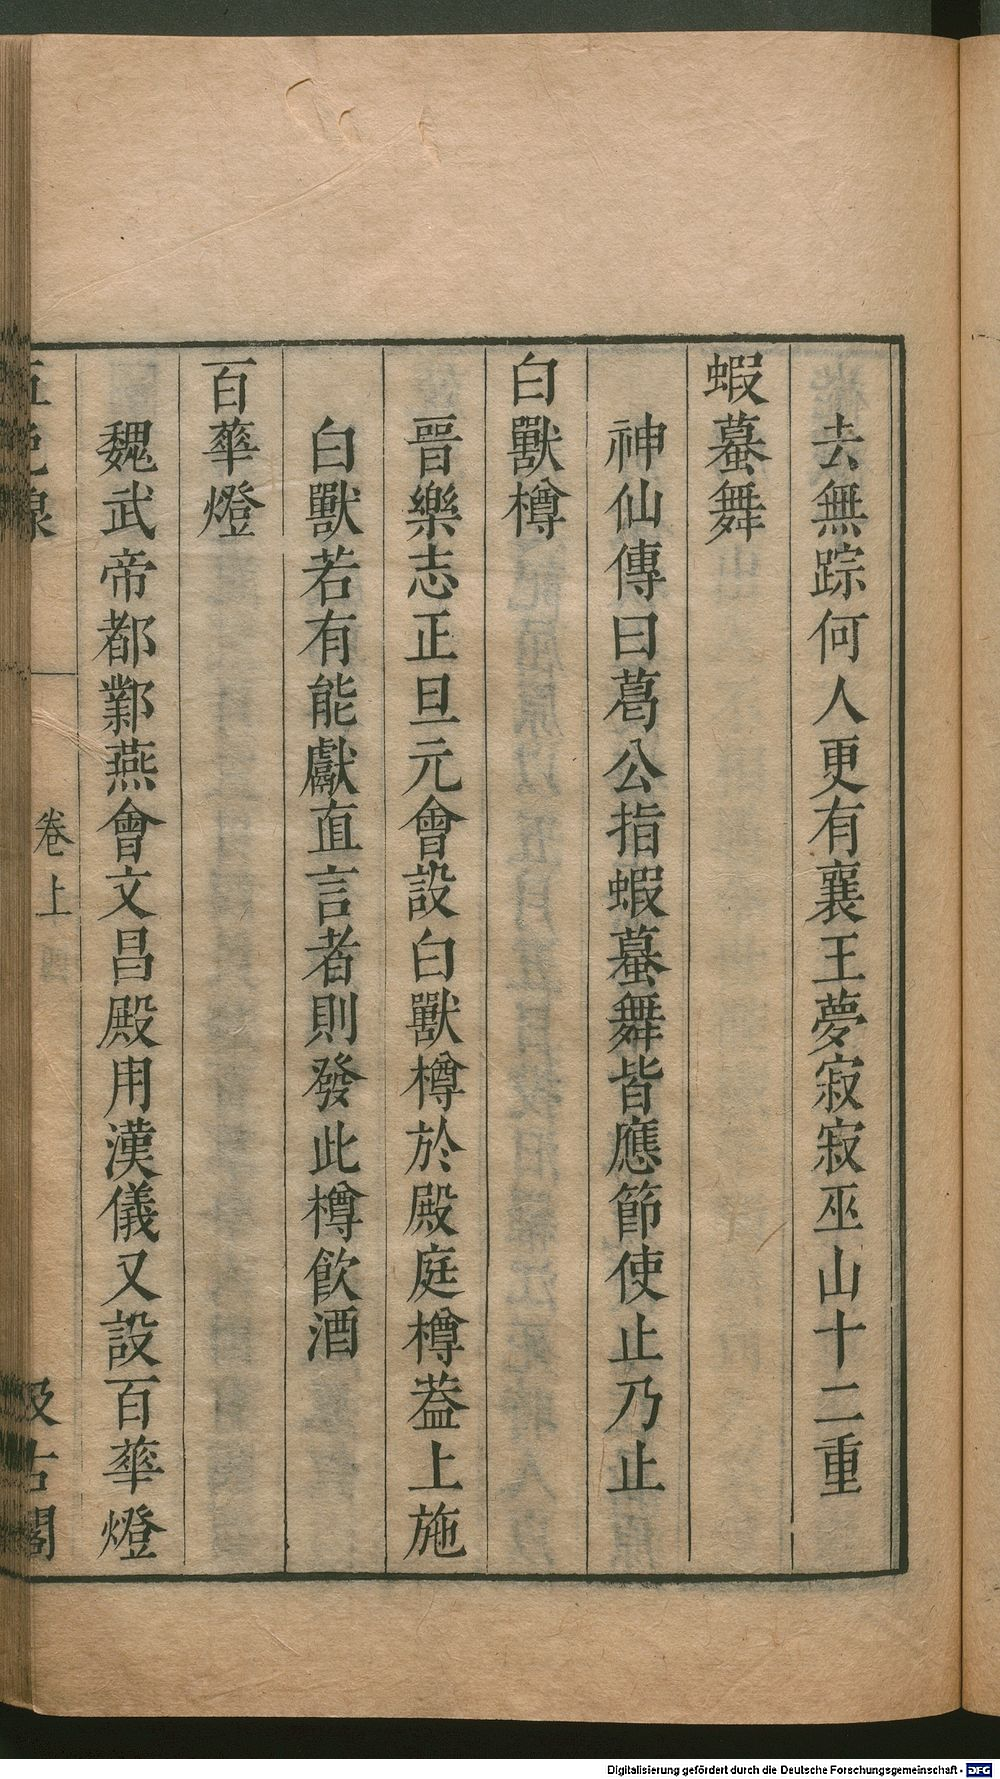 去無踪何人更有襄王夢寂寂巫山十二重
蝦蟇舞
神仙傳曰葛公指蝦蟇舞皆應節使止乃止
白獸樽
晉樂志正旦元會設白獸樽於殿庭樽葢上施
白獸若有能獻直言者則發此樽飮酒
百華燈
魏武帝都鄴燕會文昌殿用漢儀又設百華燈
五色線
卷上
汲古閣
Digitalisierung gefördert durch die Deutsche Forschungsgemeinschaft - DFG